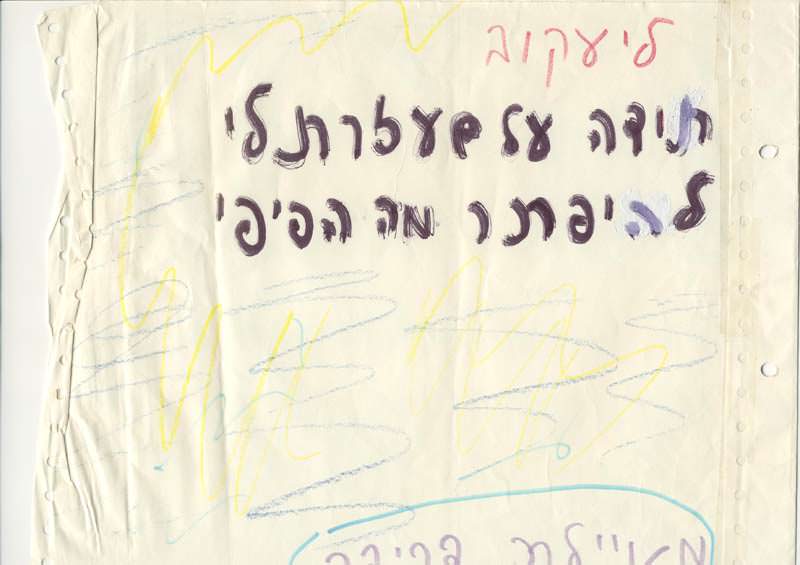 ליעקוב
תודה על שעזרת לי
להיפתר מה הפיפי
מאיילת